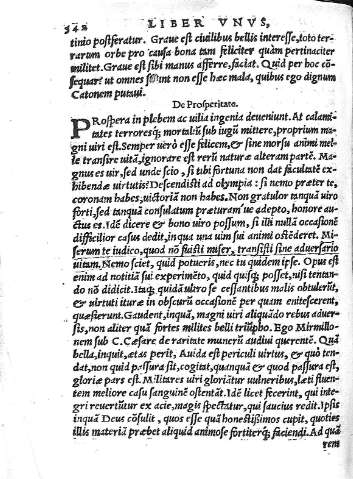 342 LIBER VNVS,
tinio postferatur. Graue est ciuilibus bellis interesse, toto ter-
rarum orbe pro causa bona tam feliciter quàm pertinaciter
militet. Graue est sibi manus afferre, faciat. Quid per hoc cō-
sequar? ut omnes sciant non esse hæc mala, quibus ego dignum
Catonem putaui.
De Prosperitate.
PRospera in plebem ac uilia ingenia deueniunt. At calami-
tates terroresq; mortaliū sub iugū mittere, proprium ma-
gni uiri est. Semper uerò esse felicem, & sine morsu animi mel-
le transire uitā, ignorare est rerū naturæ alteram partē. Ma-
gnus es uir, sed unde scio, si tibi fortuna non dat facultatē ex-
hibendæ uirtutis? Descendisti ad olympia: si nemo præter te,
coronam habes, uictoriā non habes. Non gratulor tanquā uiro
forti, sed tanquā consulatum præturam ue adepto, honore au-
ctus es. Idē dicere & bono uiro possum, si illi nullā occasionē
difficilior casus dedit, in qua unā uim sui animi ostēderet. Mi-
serum te iudico, quod nō fuisti miser, transisti sine aduersario
uitam. Nemo sciet, quid potueris, nec tu quidem ipse. Opus est
enim ad notitiā sui experimēto, quid quisq; posset, nisi tentan-
do nō didicit. Itaq; quidā ultro se cessantibus malis obtulerūt,
& uirtuti ituræ in obscurū occasionē per quam enitesceret,
quæsierunt. Gaudent, inquā, magni uiri aliquādo rebus aduer-
sis, non aliter quā fortes milites belli triūpho. Ego Mirmillo-
nem sub C. Cæsare de raritate munerū audiui querentē. Quā
bella, inquit, ætas perit. Auida est periculi uirtus, & quò ten-
dat, non quid passura sit, cogitat, quanquā & quod passura est,
gloriæ pars est. Militares uiri gloriātur uulneribus, læti fluen-
tem meliore casu sanguinē ostentāt. Idē licet fecerint, qui inte-
gri reuertūtur ex acie, magis spectatur, qui saucius redit. Ipsis
inquā Deus cōsulit, quos esse quā honestissimos cupit, quoties
illis materiā præbet aliquid animose fortiterq; faciendi. Ad quā
rem